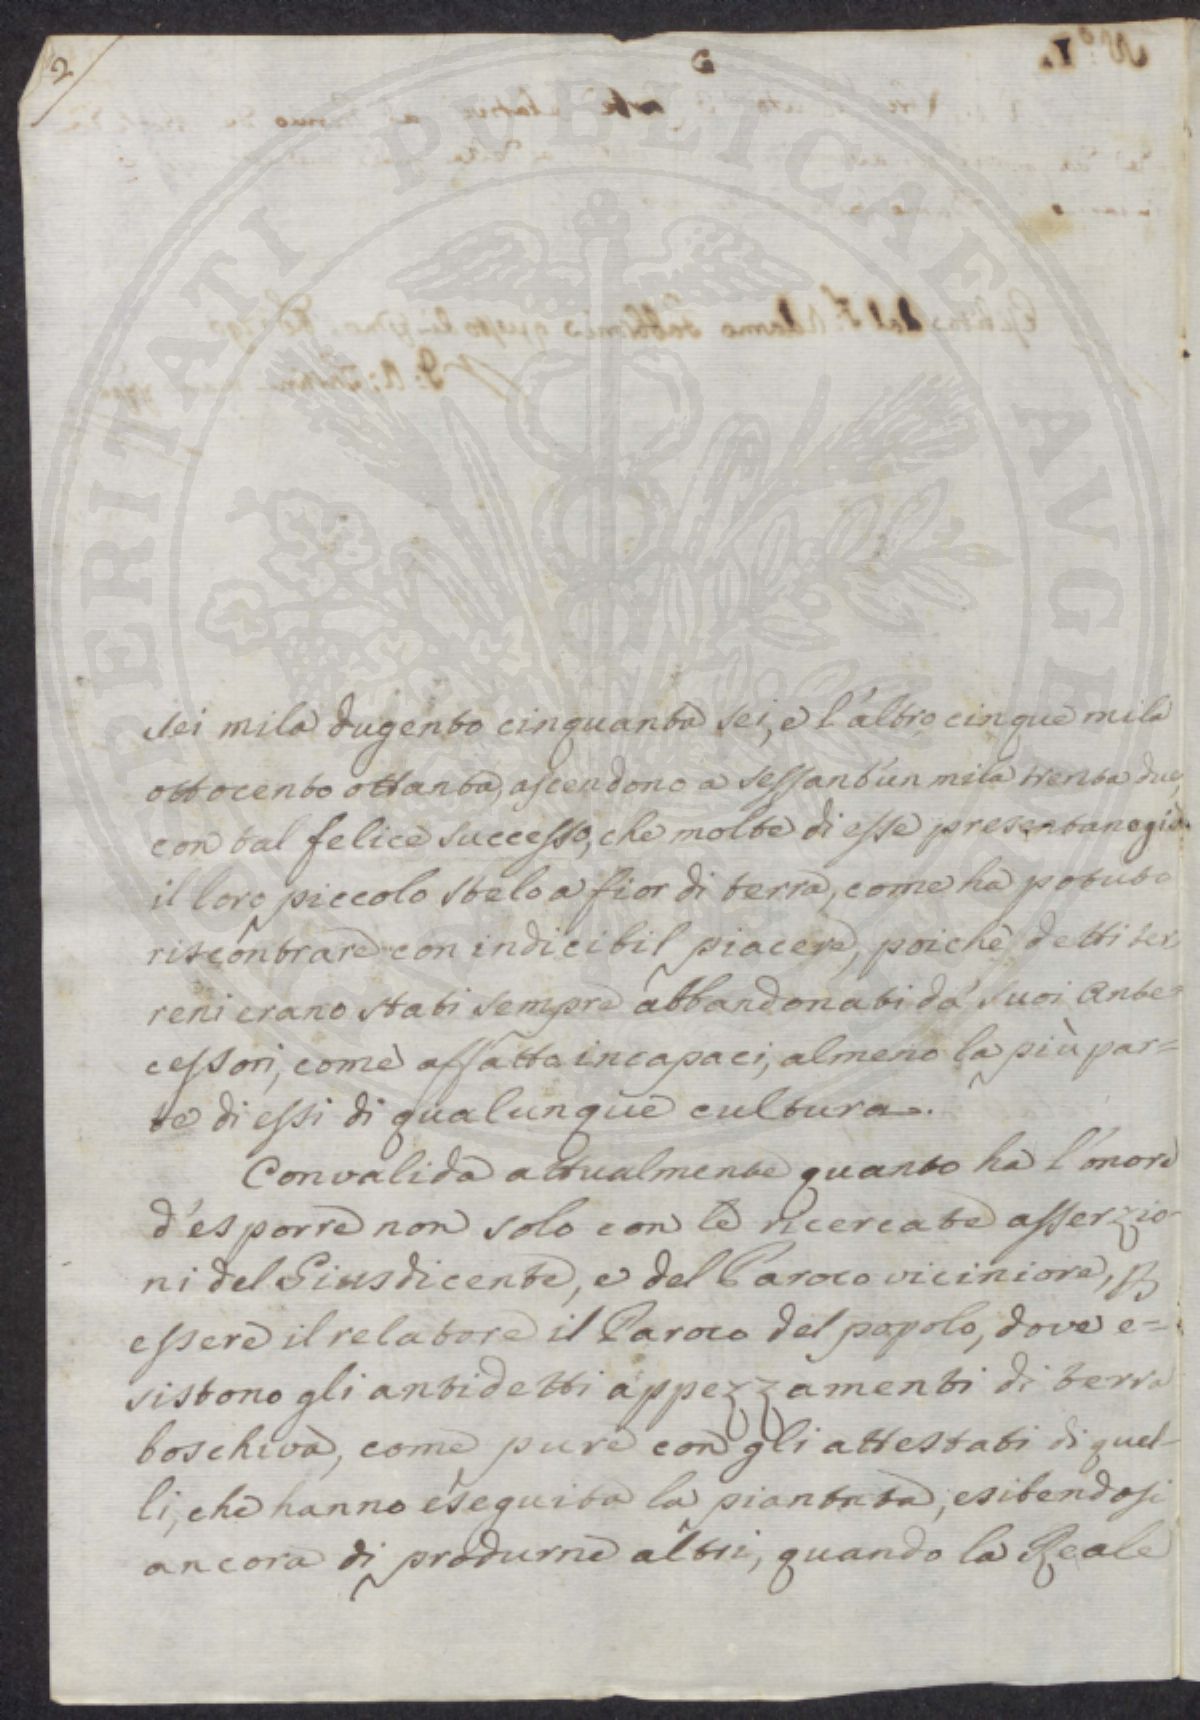 2
sei mila dugento cinquanta sei, e l'altro cinque mila
ottocento ottanta, ascendono a sessant'un mila trenta due,
con tal felice successo, che molte di esse presentano già
il loro piccolo stelo a fior di terra, come ha potuto
riscontrare con indicibil piacere, poichè detti ter
reni erano stati sempre abbandonati da' suoi Ante=
cessori, come affatto incapaci, almeno la più par=
te di essi di qualunque cultura.
Convalida attualmente quanto ha l'onore
d'esporre non solo con le ricercate asserzio-
ni del Giusdicente, e del Paroco viciniore,
essere il relatore il Paroco del popolo, dove e=
sistono gli antidetti appezzamenti di terra
boschiva, come pure con gli attestati di quel-
li, che hanno eseguita la piantata, esibendosi
ancora di produrne altri, quando la Reale
PROSPERITATI PUBLICAE AVGENDAE